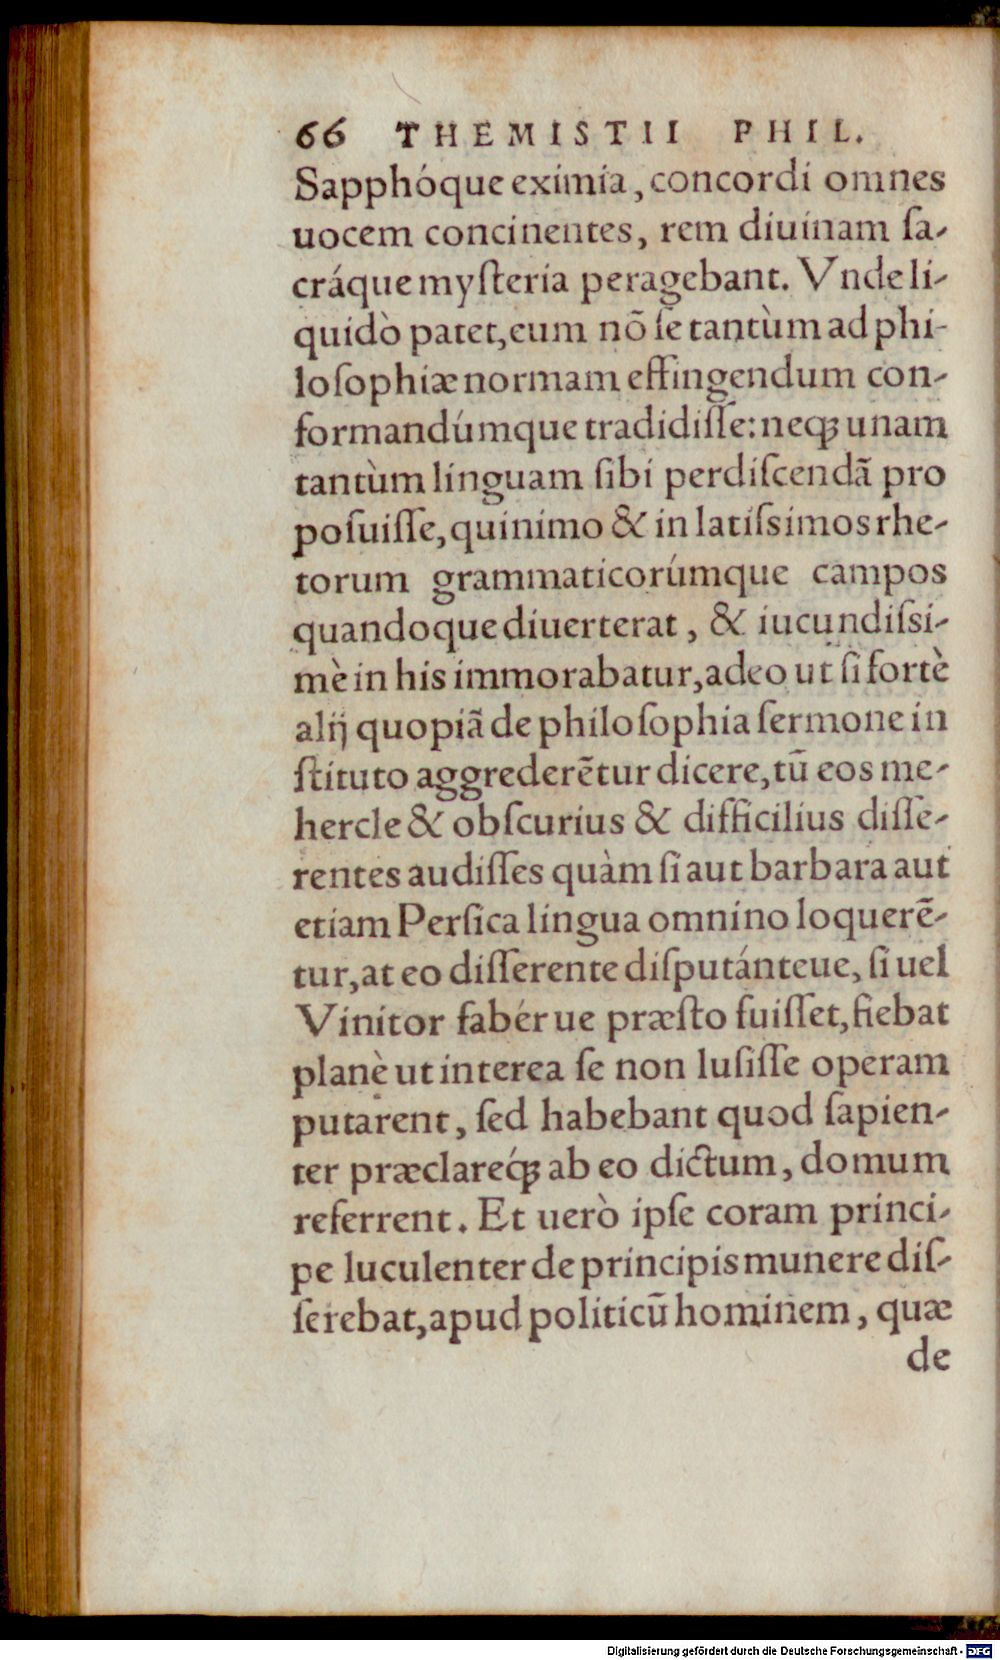 66 THEMISTII PHIL.
Sapphóque eximia, concordi omnes
uocem concinentes, rem diuinam ſa-
cráque myſteria peragebant. Vnde li-
quidò patet, eum nõ ſe tantùm ad phi-
loſophiæ normam effingendum con-
formandúmque tradidiſſe: neqꝫ unam
tantùm linguam ſibi perdiſcendã pro
poſuiſſe, quinimo & in latiſsimos rhe-
torum grammaticorúmque campos
quandoque diuerterat, & iucundiſsi-
mè in his immorabatur, adeo ut ſi fortè
alij quopiã de philoſophia ſermone in
ſtituto aggrederẽtur dicere, tũ eos me-
hercle & obſcurius & difficilius diſſe-
rentes audiſſes quàm ſi aut barbara aut
etiam Perſica lingua omnino loquerẽ-
tur, at eo diſſerente diſputánteue, ſi uel
Vinitor fabér ue præſto fuiſſet, fiebat
planè ut interea ſe non luſiſſe operam
putarent, ſed habebant quod ſapien-
ter præclareq́ꝫ ab eo dictum, domum
referrent. Et uerò ipſe coram princi-
pe luculenter de principis munere diſ-
ſerebat, apud politicũ hominem, quæ
de
Digitalisierung gefördert durch die Deutsche Forschungsgemeinschaft - DFG